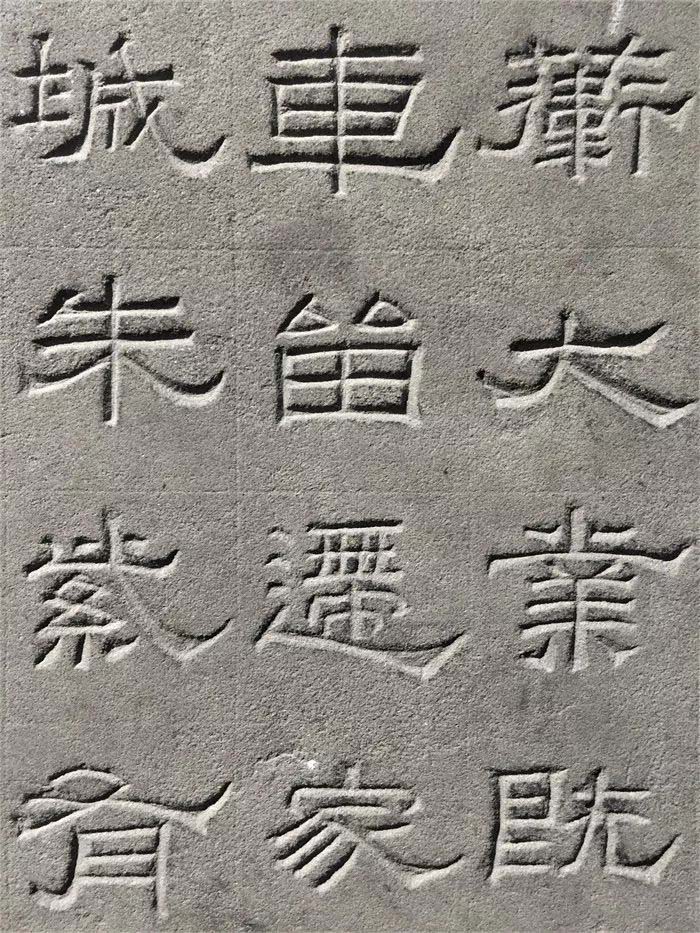 大業既
車留遷家
城朱紫有